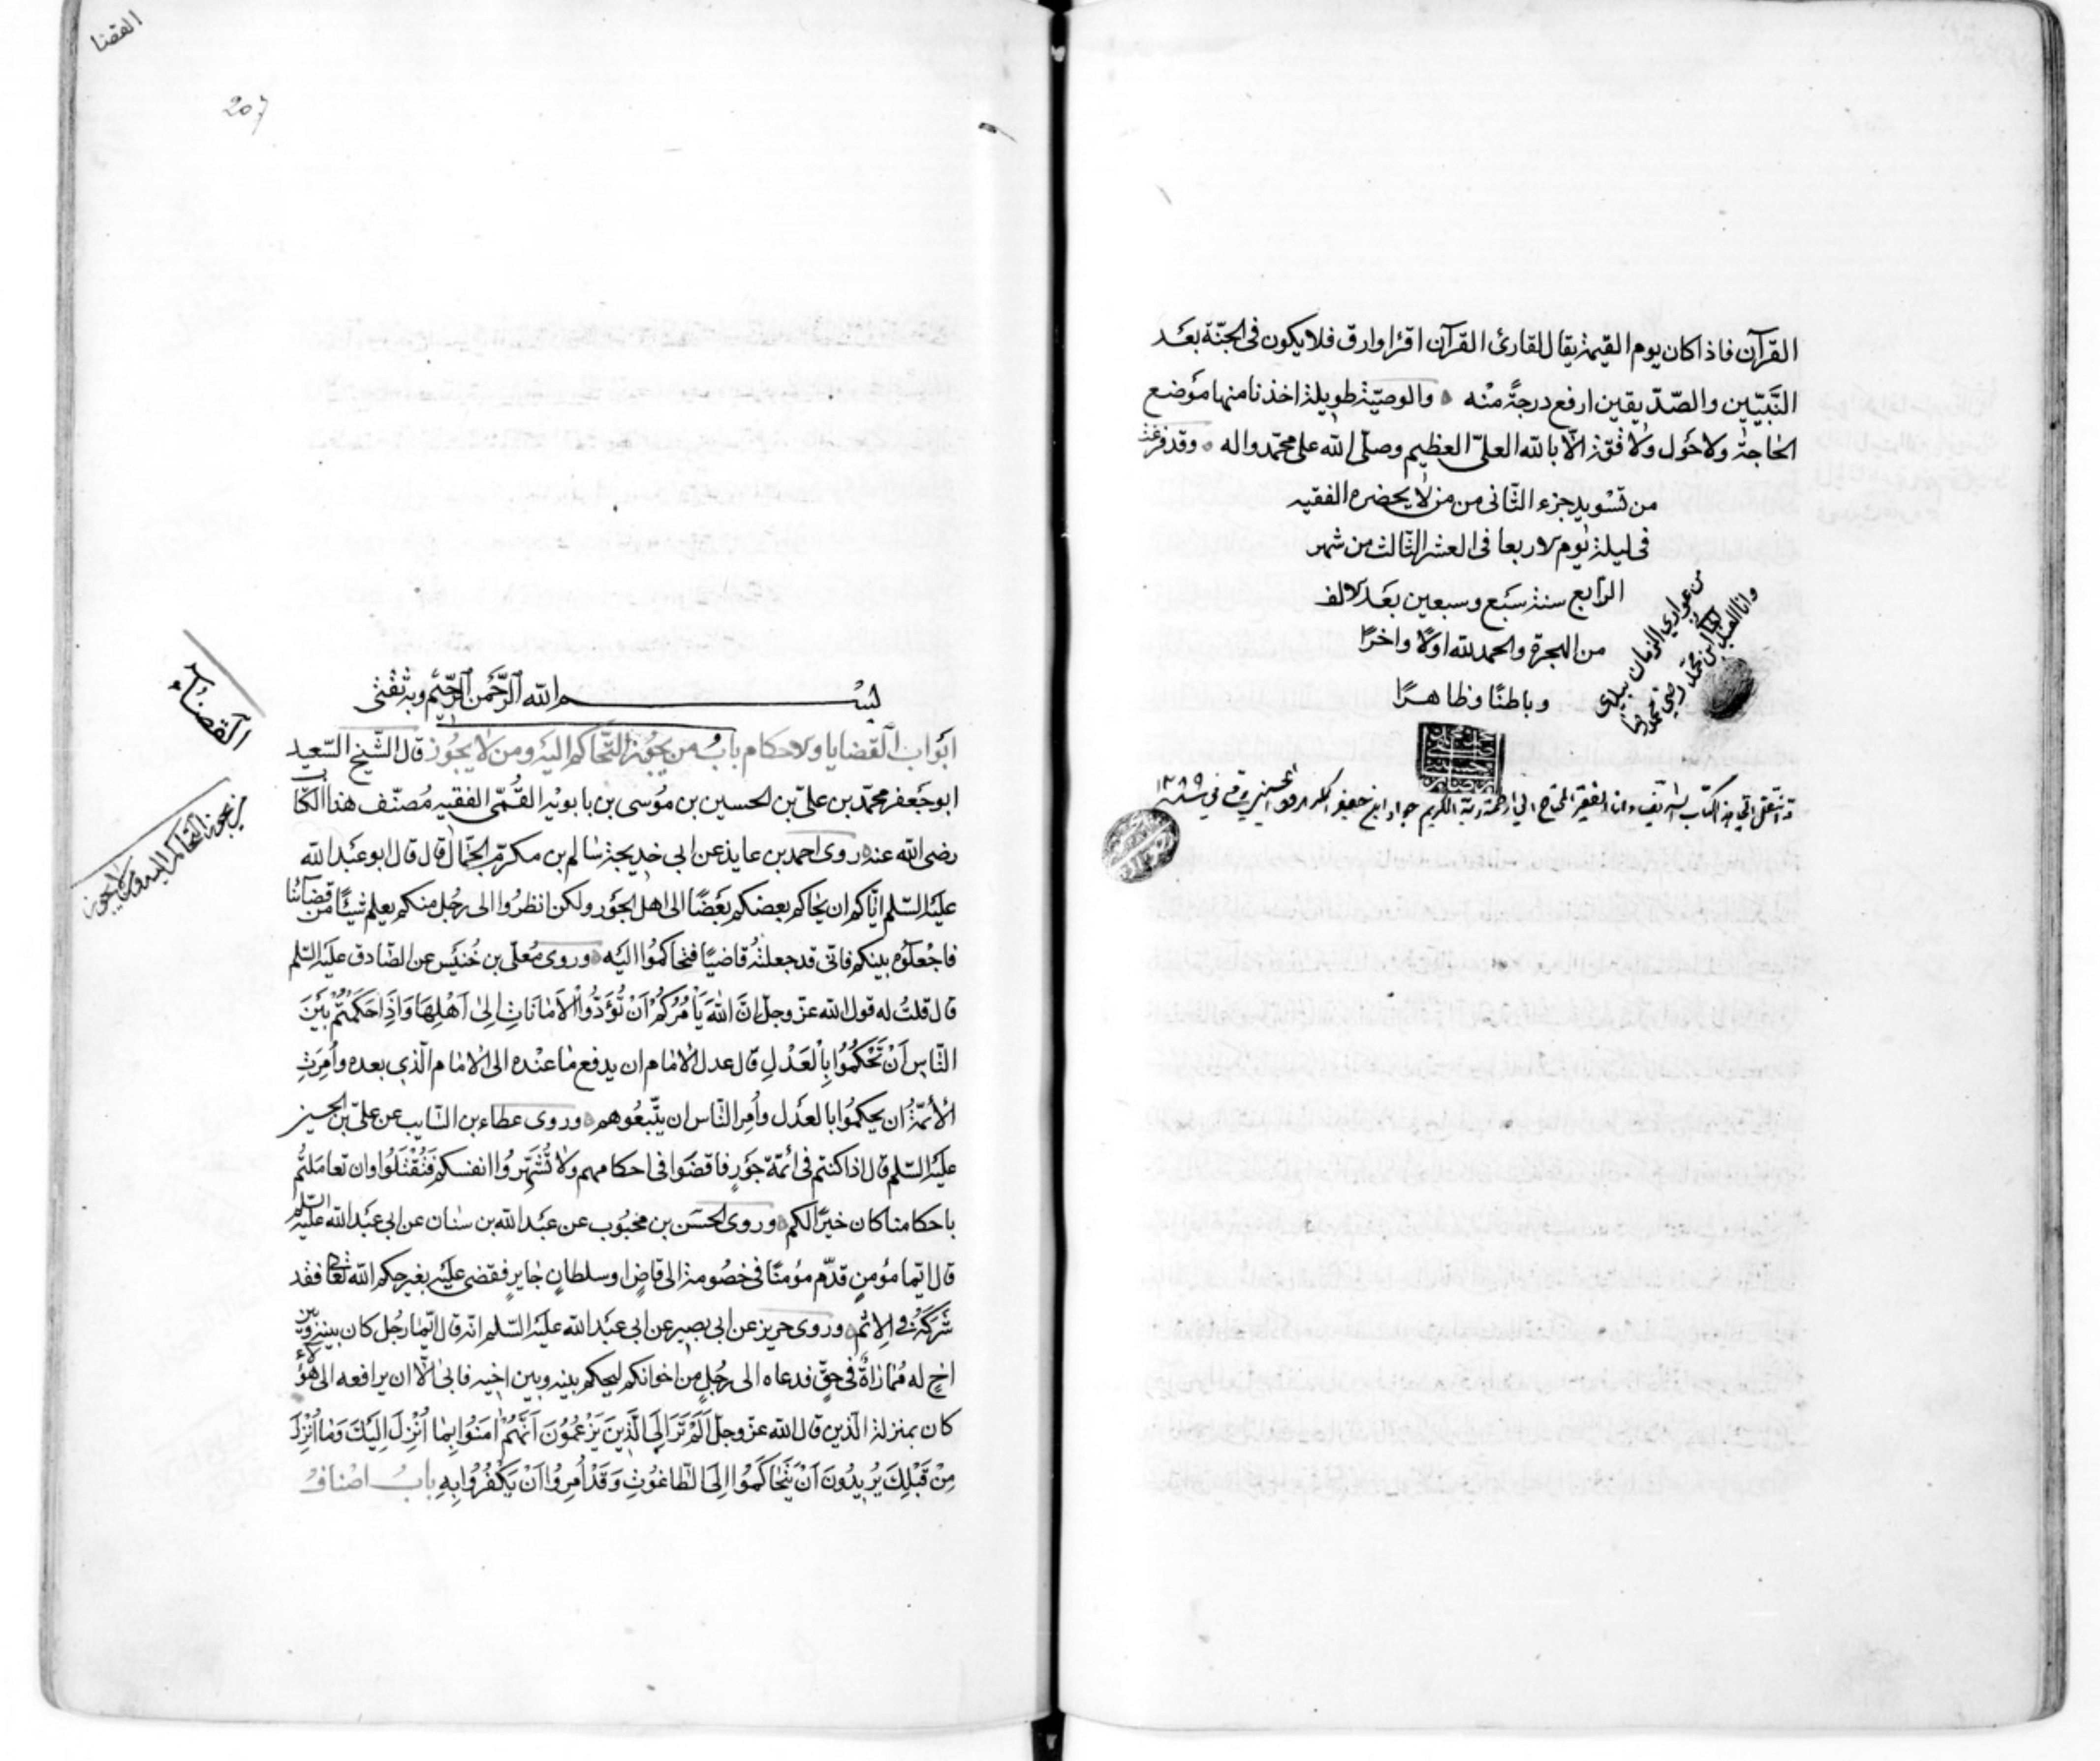 القرآن فاذا كان يوم القيمة يقال لقارئ القرآن اقرا وارق فلا يكون فى الجنّة بعد
النّبيّين والصّدّيقين ارفع درجةً منه والوصيّة طويلة اخذنا منها موضع
الحاجة ولا حول ولا قوّة الّا بالله العلىّ العظيم وصلّى الله على محمّد واله وقد فرغت
من تسويد جزء الثّانى من من لا يحضره الفقيه
فى ليلة يوم الاربعا فى العشر الثّالث من شهر
الرّابع سنة سبع وسبعين بعد الالف
من الهجرة والحمد لله اوّلا واخرًا
وباطنًا وظاهرًا
من عوارى الزمان بيدى
قد انتقل الىّ هذا الكتاب الشريف وانا الفقير المحتاج الى رحمة ربّه الكريم جواد ابن جعفر
القضا
207
بسم الله الرّحمن الرّحيم وبه ثقتى
ابواب القضايا والاحكام باب من يجوز التّحاكم اليه ومن لا يجوز قال الشّيخ السّعيد
ابو جعفر محمّد بن علىّ بن الحسين بن موسى بن بابويه القمّى الفقيه مصنّف هذا الكتاب
رضى الله عنه روى احمد بن عايذ عن ابى خديجة سالم بن مكرم الجمّال قال قال ابو عبد الله
عليه السّلم ايّاكم ان يحاكم بعضكم بعضًا الى اهل الجور ولكن انظروا الى رجل منكم يعلم شيئًا من قضآئنا
فاجعلوه بينكم فانّى قد جعلته قاضيًا فتحاكموا اليه وروى معلّى بن خنيس عن الصّادق عليه السّلم
قال قلت له قول الله عزّ وجلّ انَّ اللهَ يَأْمُرُكُمْ اَنْ تُؤَدُّوا الْاَمَانَاتِ اِلٰى اَهْلِهَا وَاِذَا حَكَمْتُمْ بَيْنَ
النَّاسِ اَنْ تَحْكُمُوا بِالْعَدْلِ قال عدل الامام ان يدفع ما عنده الى الامام الّذى بعده وامرت
الأئمّة ان يحكموا بالعدل وامر النّاس ان يتّبعوهم وروى عطاء بن السّايب عن علىّ بن الحسين
عليه السّلم قال اذا كنتم فى ائمّة جور فاقضوا فى احكامهم ولا تشهّروا انفسكم فتقتلوا وان تعاملتم
باحكامنا كان خيرًا لكم وروى الحسن بن محبوب عن عبد الله بن سنان عن ابى عبد الله عليه السّلم
قال ايّما مؤمن قدّم مؤمنًا فى خصومة الى قاضٍ او سلطانٍ جايرٍ فقضى عليه بغير حكم الله تعالى فقد
شركه فى الإثم وروى حريز عن ابى بصير عن ابى عبد الله عليه السّلم انّه قال ايّما رجل كان بينه وبين
اخٍ له مماراةٌ فى حقّ فدعاه الى رجلٍ من اخوانكم ليحكم بينه وبين اخيه فابى الّا ان يرافعه الى هؤلاء
كان بمنزلة الّذين قال الله عزّ وجلّ اَلَمْ تَرَ اِلَى الَّذِينَ يَزْعُمُونَ اَنَّهُمْ اٰمَنُوا بِمَا اُنْزِلَ اِلَيْكَ وَمَا اُنْزِلَ
مِنْ قَبْلِكَ يُرِيدُونَ اَنْ يَتَحَاكَمُوا اِلَى الطَّاغُوتِ وَقَدْ اُمِرُوا اَنْ يَكْفُرُوا بِهِ باب اصناف
القضآء
من يجوز التحاكم اليه ومن لا يجوز